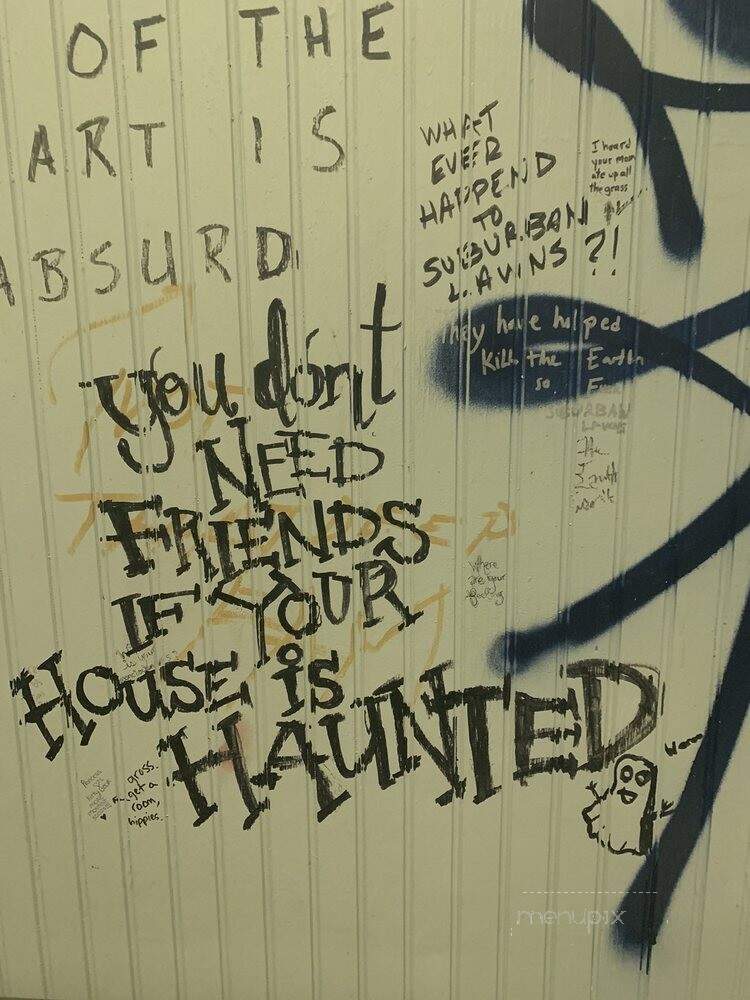 OF THE
ART IS
ABSURD
WHAT
EVER
HAPPEND
TO
SUBURBAN
LAWNS ?!
I heard
your mom
ate up all
the grass
They have helped
Kill the Earth
so
SUBURBAN
LAWNS
the
you don't
NEED
FRIENDS
IF YOUR
HOUSE is
HAUNTED
Where
are your
gross.
get a
room,
hippies.
menupix